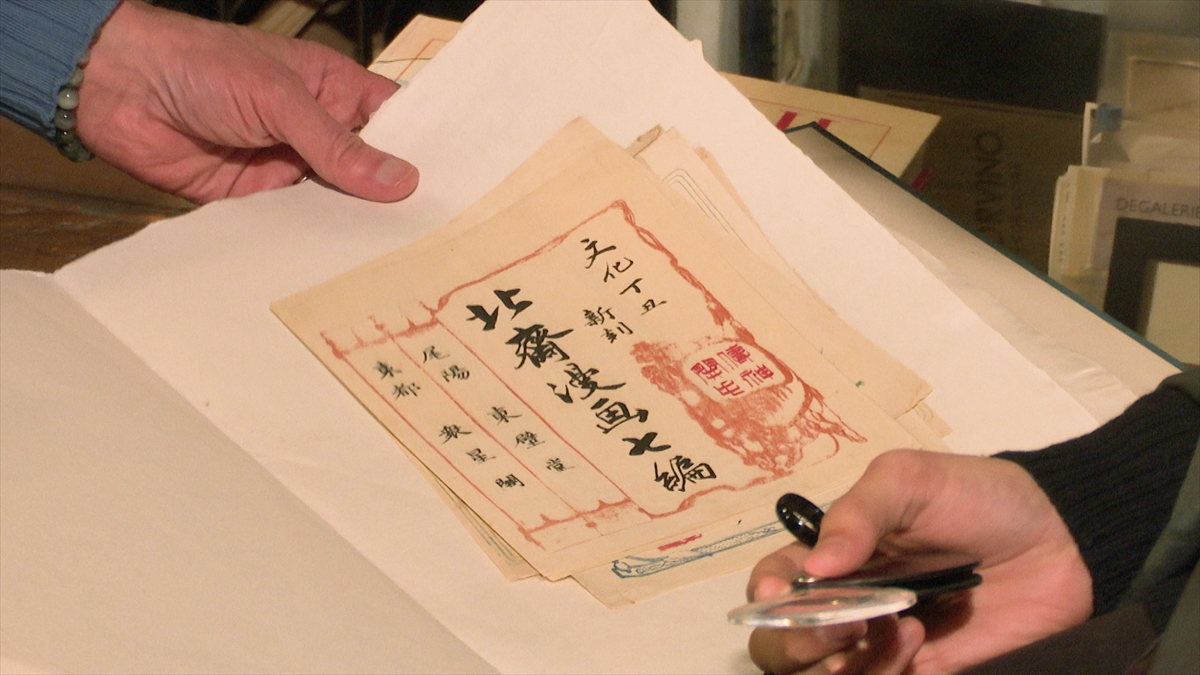 文化丁丑
新刻
北斎漫画七編
尾陽 東壁堂
東都 衆星閣
DEGALERIE